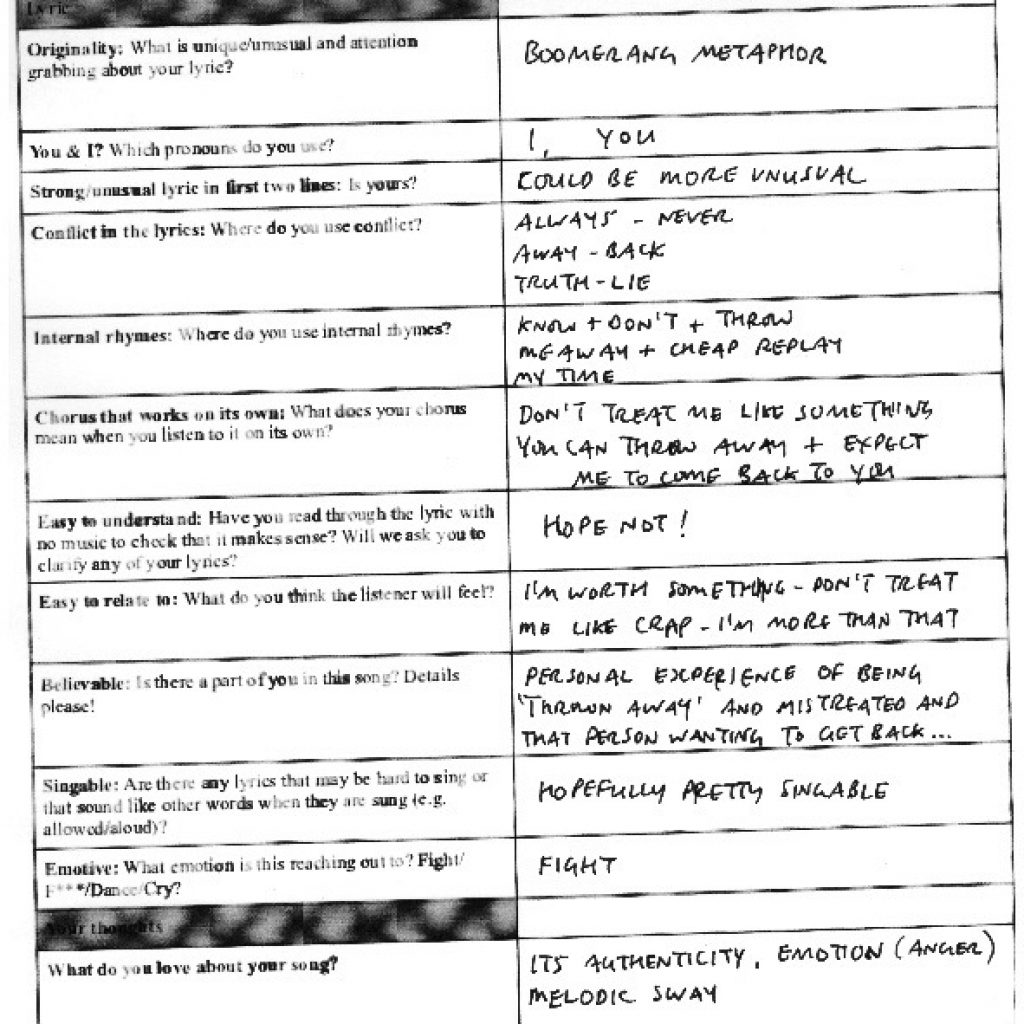 Lyric
Originality: What is unique/unusual and attention
grabbing about your lyric?
BOOMERANG METAPHOR
You & I? Which pronouns do you use?
I, YOU
Strong/unusual lyric in first two lines: Is yours?
COULD BE MORE UNUSUAL
Conflict in the lyrics: Where do you use conflict?
ALWAYS - NEVER
AWAY - BACK
TRUTH - LIE
Internal rhymes: Where do you use internal rhymes?
KNOW + DON'T + THROW
ME AWAY + CHEAP REPLAY
MY TIME
Chorus that works on its own: What does your chorus
mean when you listen to it on its own?
DON'T TREAT ME LIKE SOMETHING
YOU CAN THROW AWAY + EXPECT
ME TO COME BACK TO YOU
Easy to understand: Have you read through the lyric with
no music to check that it makes sense? Will we ask you to
clarify any of your lyrics?
HOPE NOT!
Easy to relate to: What do you think the listener will feel?
I'M WORTH SOMETHING - DON'T TREAT
ME LIKE CRAP - I'M MORE THAN THAT
Believable: Is there a part of you in this song? Details
please!
PERSONAL EXPERIENCE OF BEING
'THROWN AWAY' AND MISTREATED AND
THAT PERSON WANTING TO GET BACK...
Singable: Are there any lyrics that may be hard to sing or
that sound like other words when they are sung (e.g.
allowed/aloud)?
HOPEFULLY PRETTY SINGABLE
Emotive: What emotion is this reaching out to? Fight/
F***/Dance/Cry?
FIGHT
Your thoughts
What do you love about your song?
ITS AUTHENTICITY, EMOTION (ANGER)
MELODIC SWAY